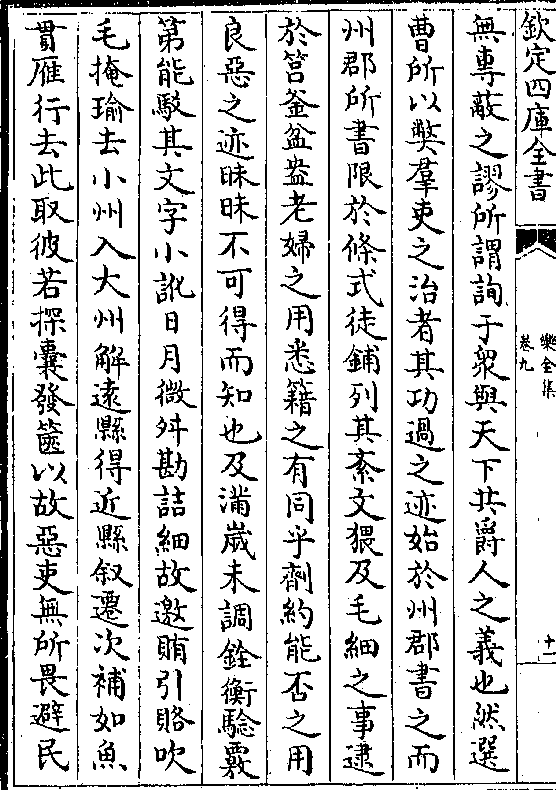 欽定四庫全書
樂全集
卷九
十一
無專蔽之謬所謂詢于衆與天下共爵人之義也然選
曹所以弊羣吏之治者其功過之迹始於州郡書之而
州郡所書限於條式徒鋪列其紊文猥及毛細之事逮
於筥釜盆盎老婦之用悉籍之有同乎劑約能否之用
良惡之迹昧昧不可得而知也及滿歲未調銓衡驗覈
第能駮其文字小訛日月微舛勘詰細故邀賄引賂吹
毛掩瑜去小州入大州解遠縣得近縣叙遷次補如魚
貫雁行去此取彼若探囊發篋以故惡吏無所畏避民